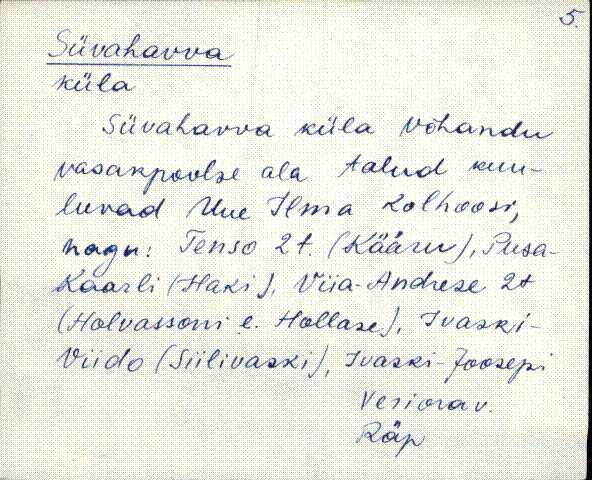 5.
Süvahavva
küla
Süvahavva küla Võhandu
vasakpoolse ala talud kuu-
luvad Uue Ilma kolhoosi,
nagu: Tenso 2 t. (Kääru), Pusa-
Kaarli (Haki), Viia-Andrese 2 t
(Holvassoni e. Hollase), Ivaski-
Viido (Siilivaski), Ivaski-Joosepi
Veriorav.
Räp